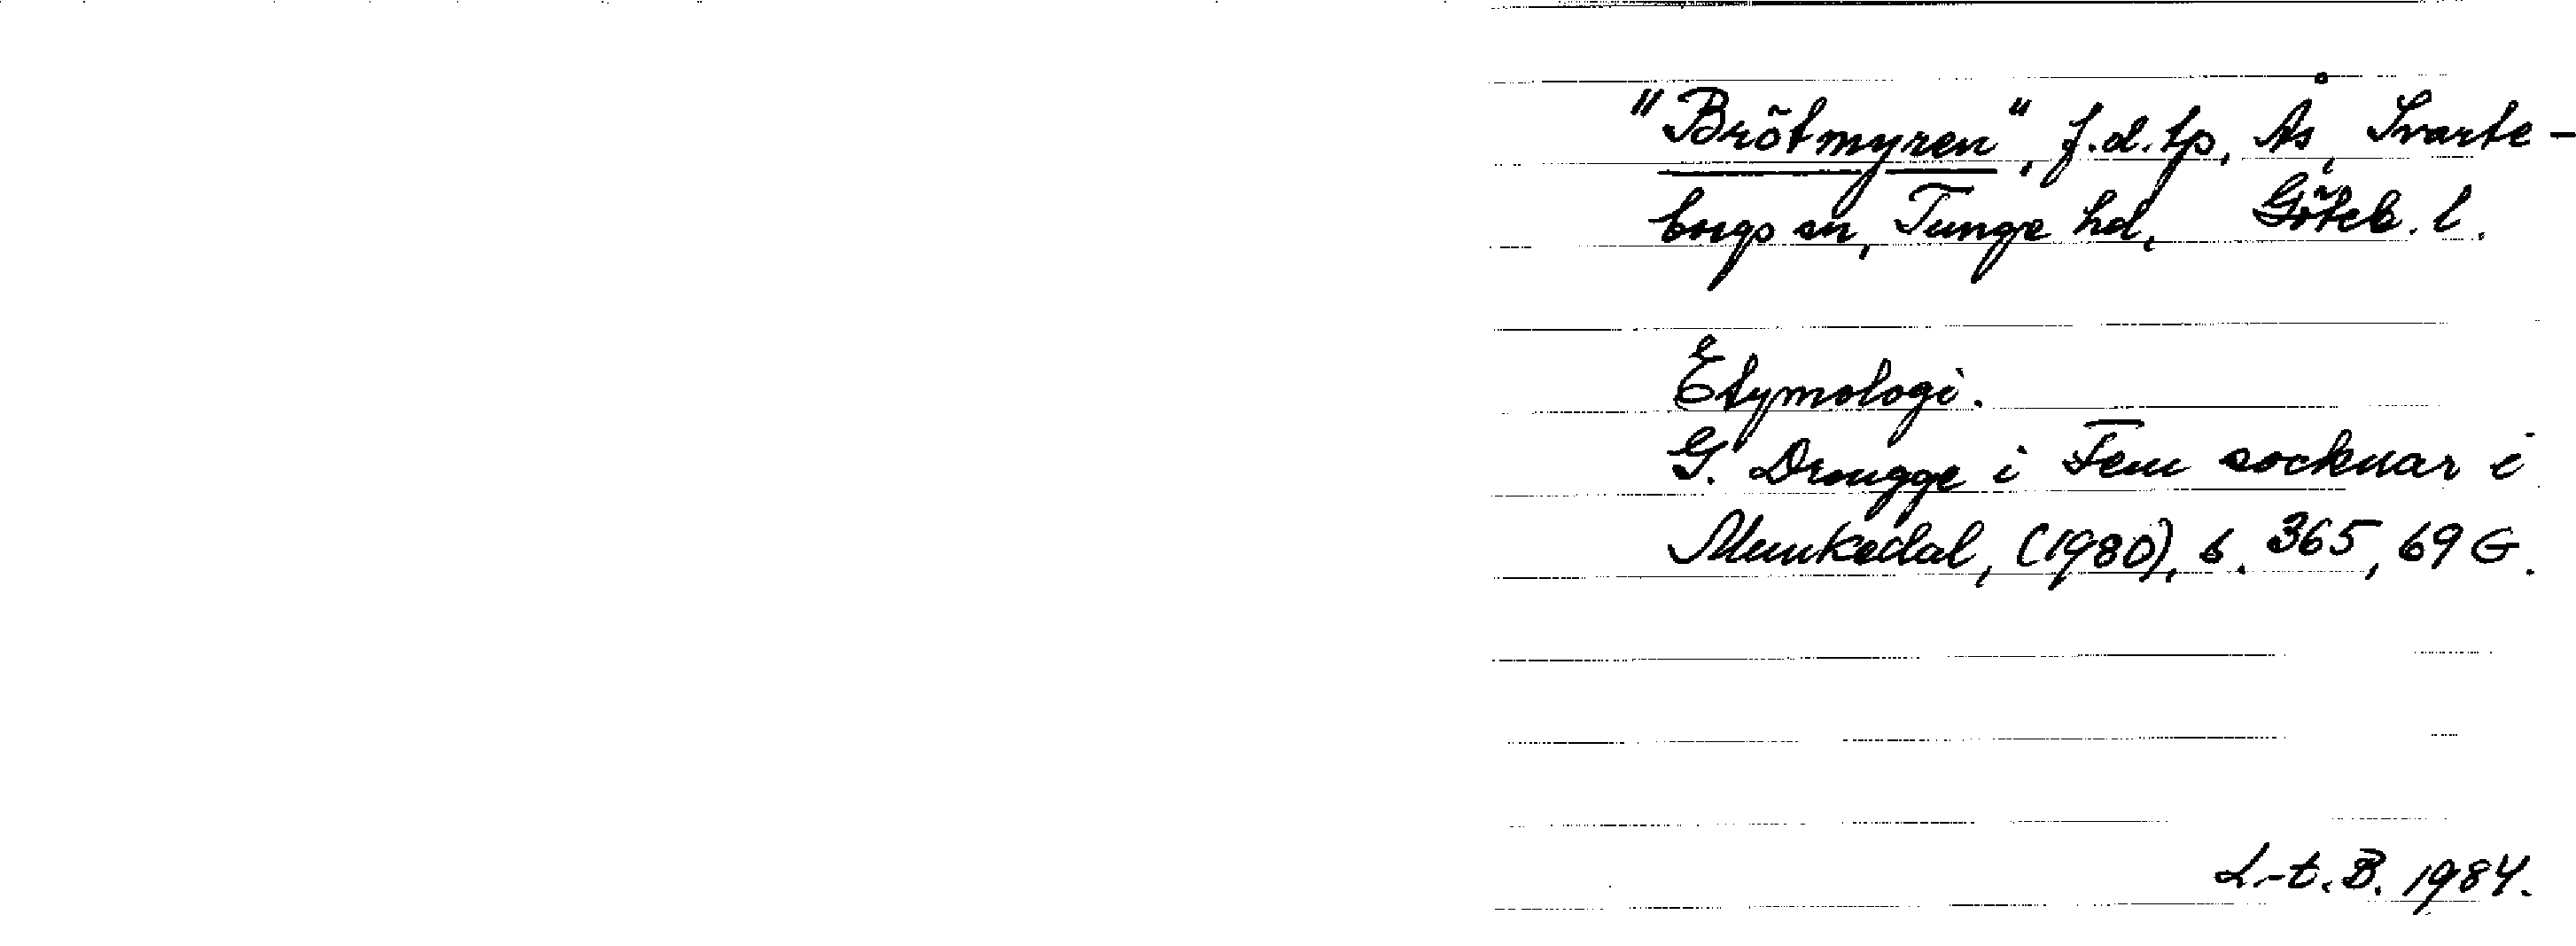 "Brötmyren", f.d. tp, Ås, Svarte-
borgs sn, Tunge hd, Göteb. l.
Etymologi.
G. Drougge i Fem socknar i
Munkedal, (1980), s. 365, 69 G.
L-t. B. 1984.